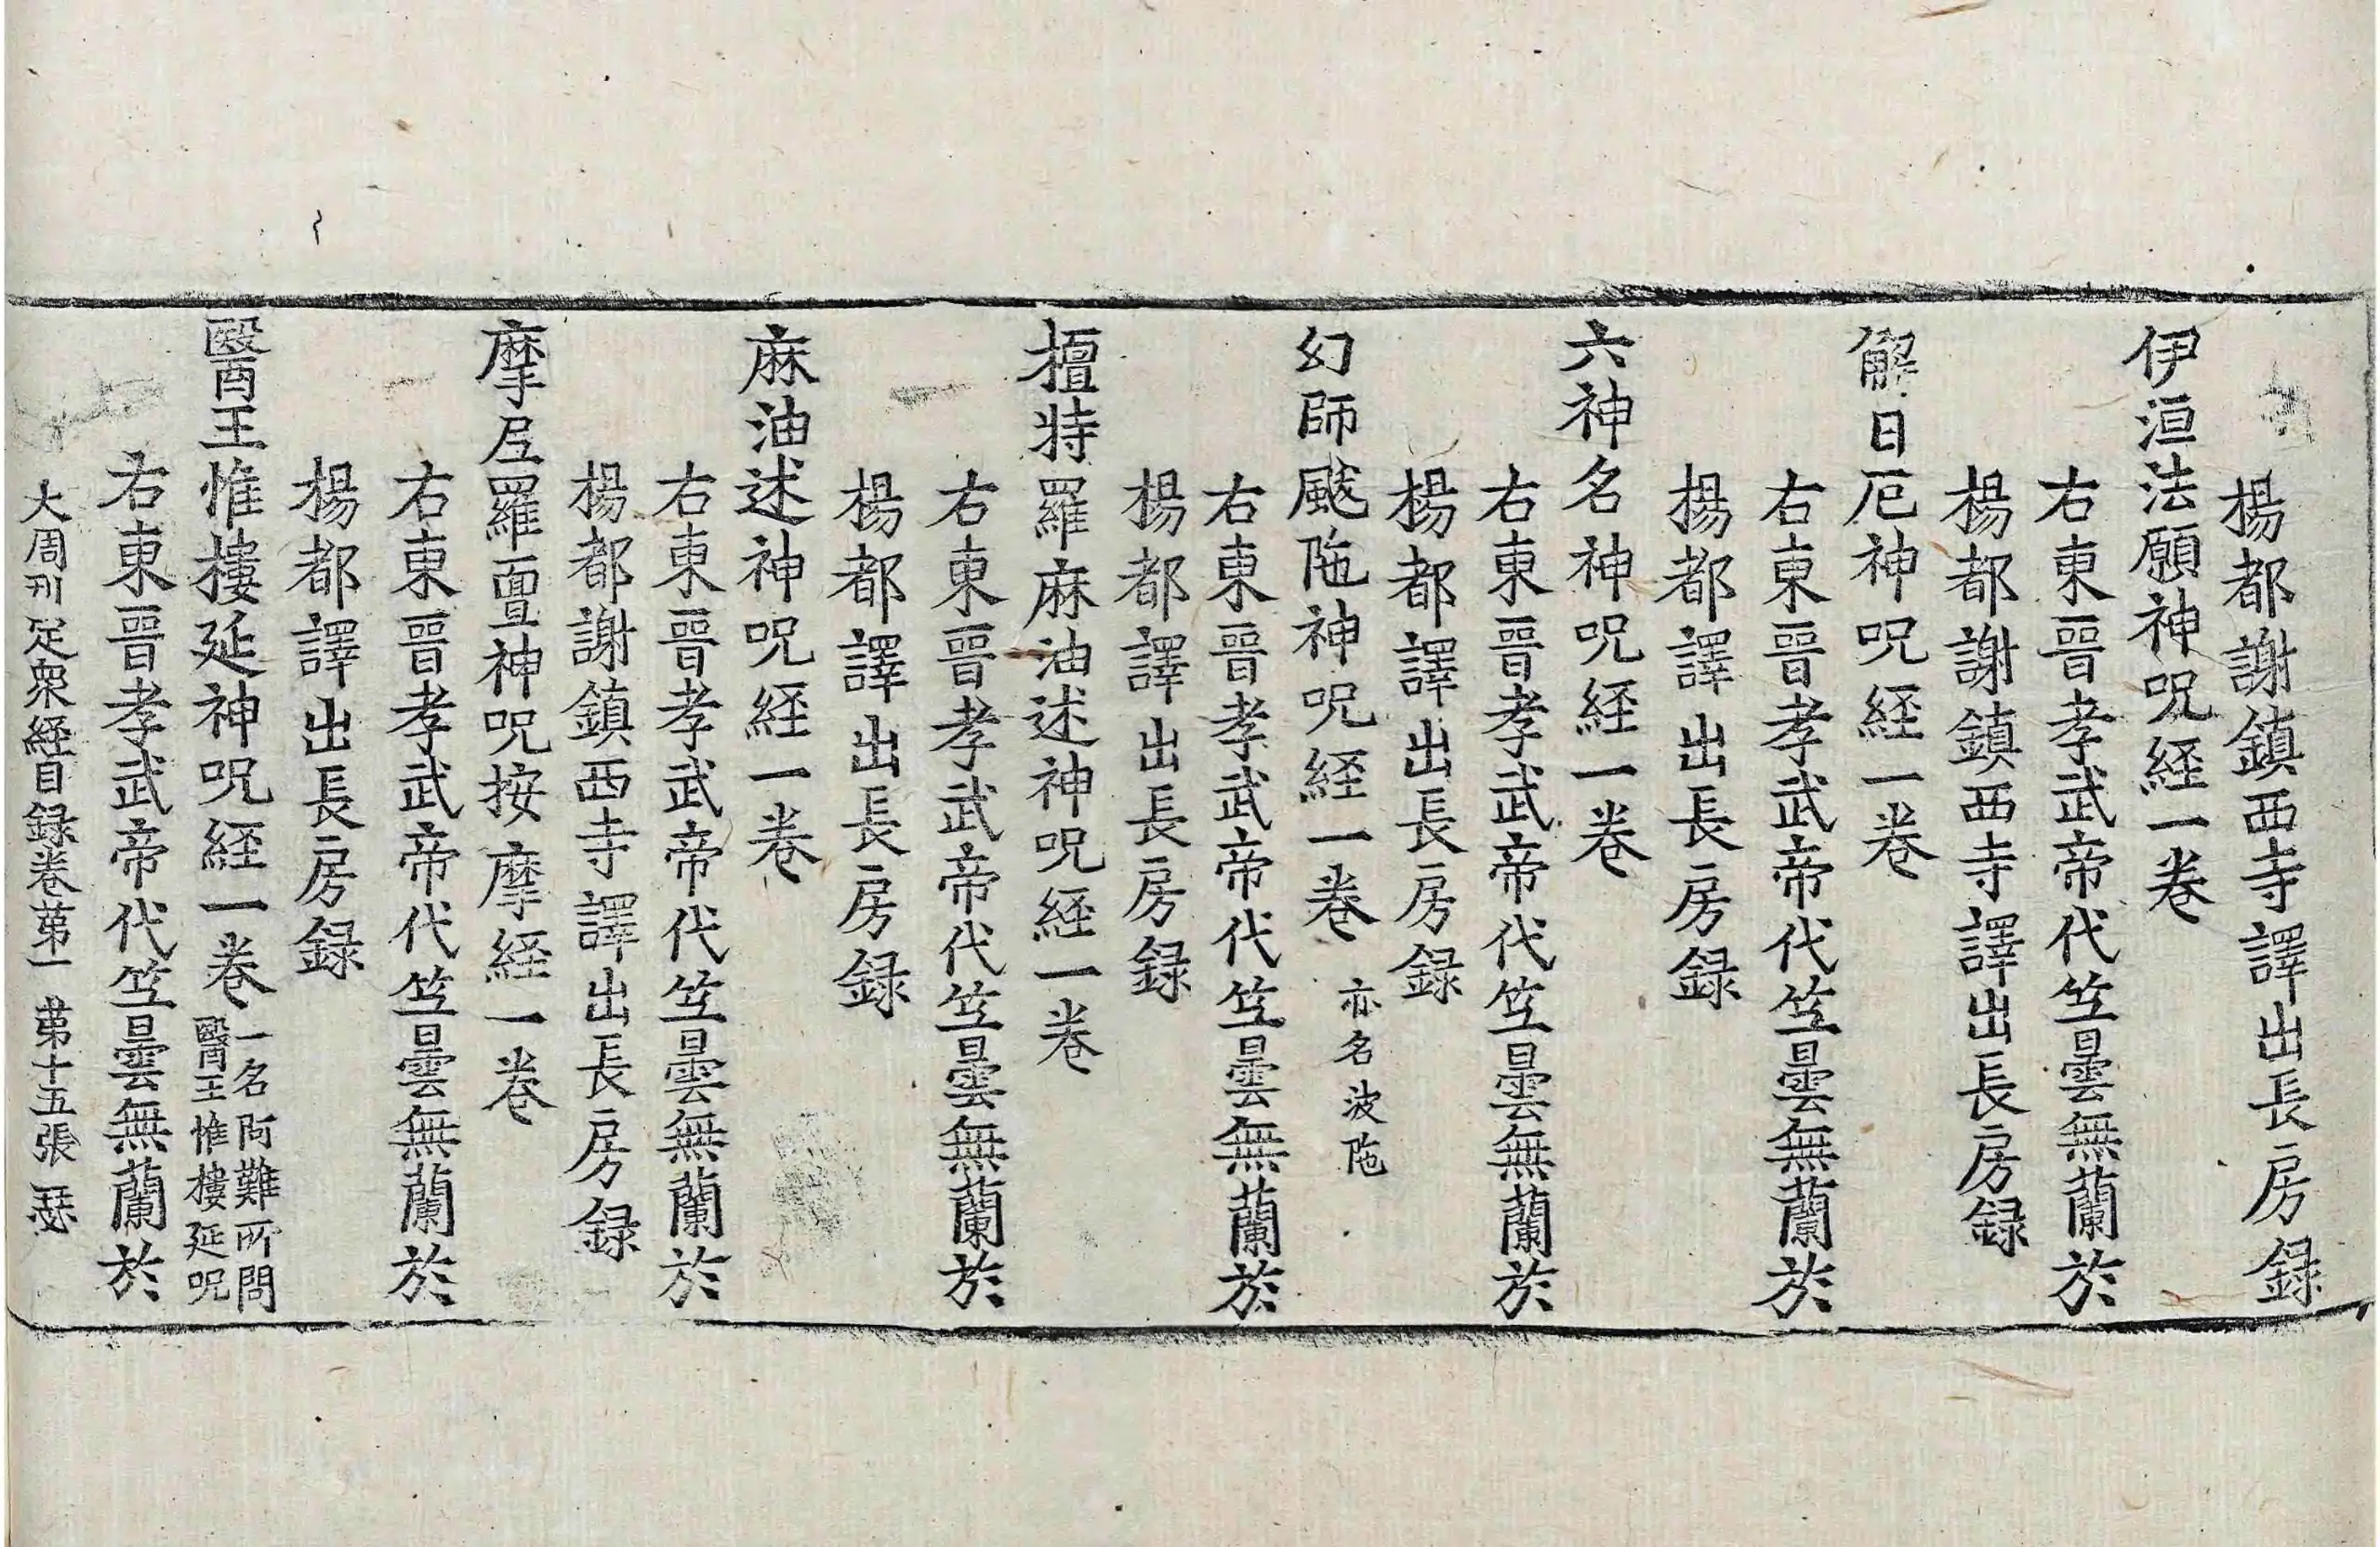 楊都謝鎮西寺譯出長房録
伊洹法願神呪経一卷
右東晉孝武帝代竺曇無蘭於
楊都謝鎮西寺譯出長房録
解日厄神呪経一卷
右東晉孝武帝代竺曇無蘭於
楊都譯出長房録
六神名神呪経一卷
右東晉孝武帝代竺曇無蘭於
楊都譯出長房録
幻師颰陁神呪経一卷 亦名波陁
右東晉孝武帝代竺曇無蘭於
楊都譯出長房録
檀特羅麻油述神呪経一卷
右東晉孝武帝代竺曇無蘭於
楊都譯出長房録
麻油述神呪経一卷
右東晉孝武帝代竺曇無蘭於
楊都謝鎮西寺譯出長房録
摩尼羅亶神呪按摩経一卷
右東晉孝武帝代竺曇無蘭於
楊都譯出長房録
醫王惟樓延神呪経一卷 一名阿難所問
醫王惟樓延呪
右東晉孝武帝代竺曇無蘭於
大周刊定衆経目録卷苐一 苐十五張 瑟